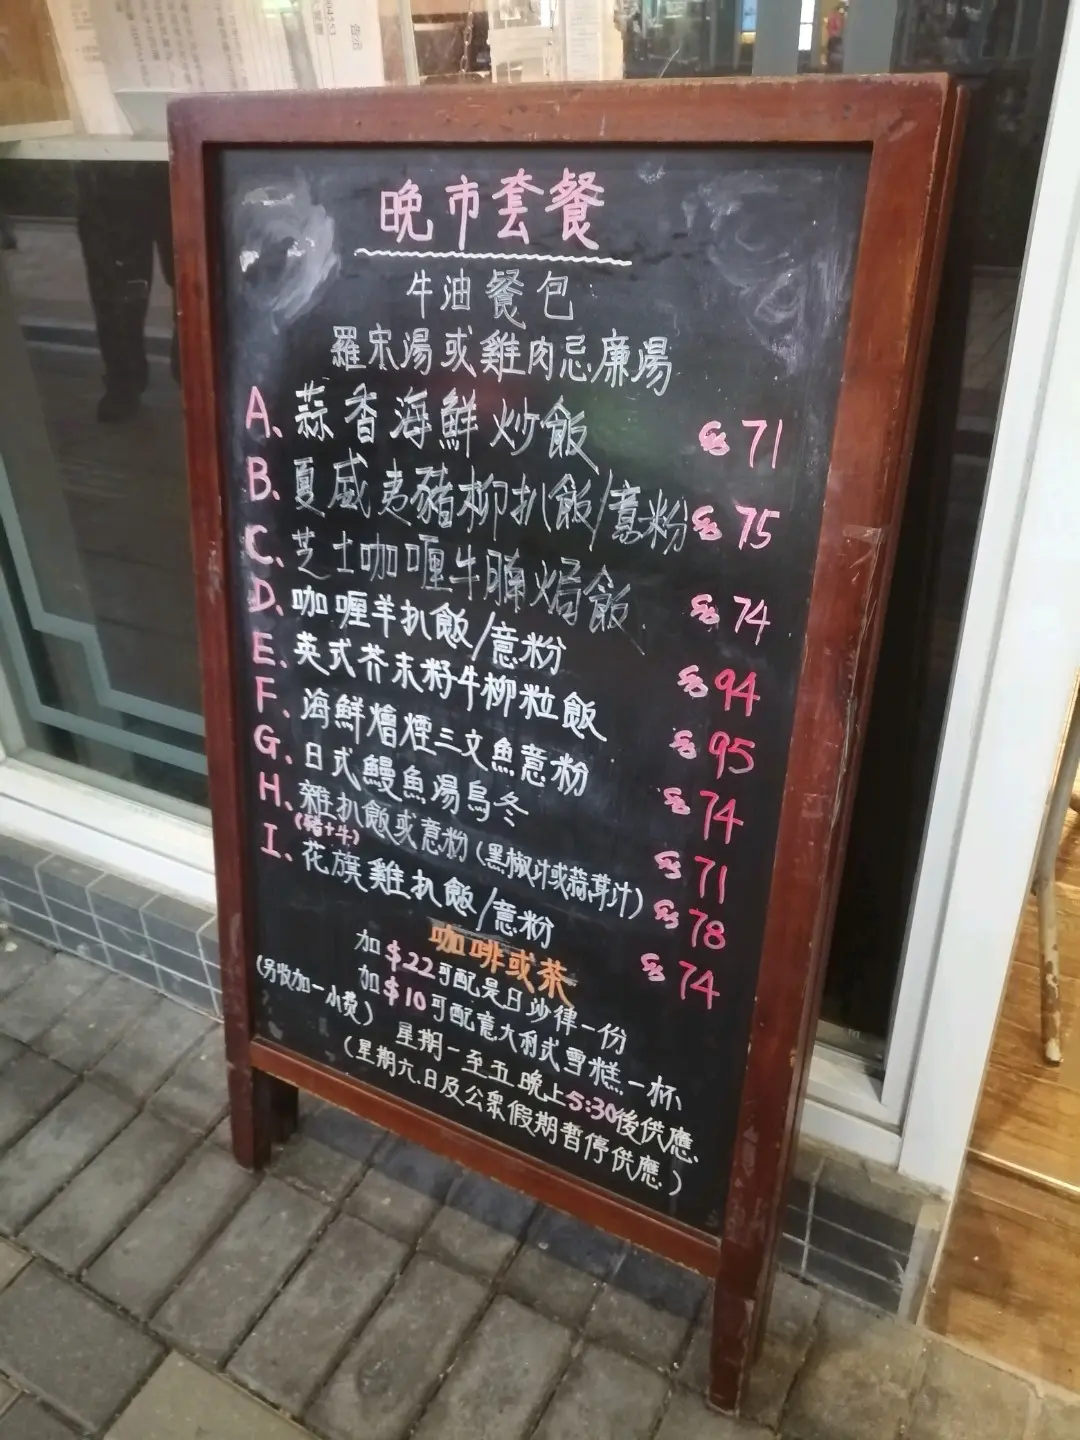 晚市套餐
牛油餐包
羅宋湯或雞肉忌廉湯
A. 蒜香海鮮炒飯 $71
B. 夏威夷豬柳扒飯/意粉 $75
C. 芝士咖喱牛腩焗飯 $74
D. 咖喱羊扒飯/意粉 $94
E. 英式芥末籽牛柳粒飯 $95
F. 海鮮燴煙三文魚意粉 $74
G. 日式鰻魚湯烏冬 $71
H. 雜扒飯或意粉(黑椒汁或蒜茸汁) $78
(豬+牛)
I. 花旗雞扒飯/意粉 $74
咖啡或茶
加$22可配是日沙律一份
加$10可配意大利式雪糕一杯
(另收加一小費)
星期一至五晚上5:30後供應
(星期六.日及公眾假期暫停供應)